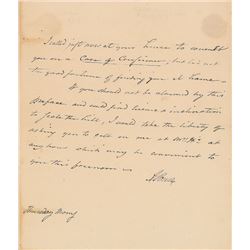 I called just now at your house to consult
you on a Case of Conscience, but had not
the good fortune of finding you at home—
If you should not be alarmed by this
preface and
to the bill, I would take the liberty of
asking you to call on me at
any hour which may be convenient to
you this forenoon
Thursday Morng